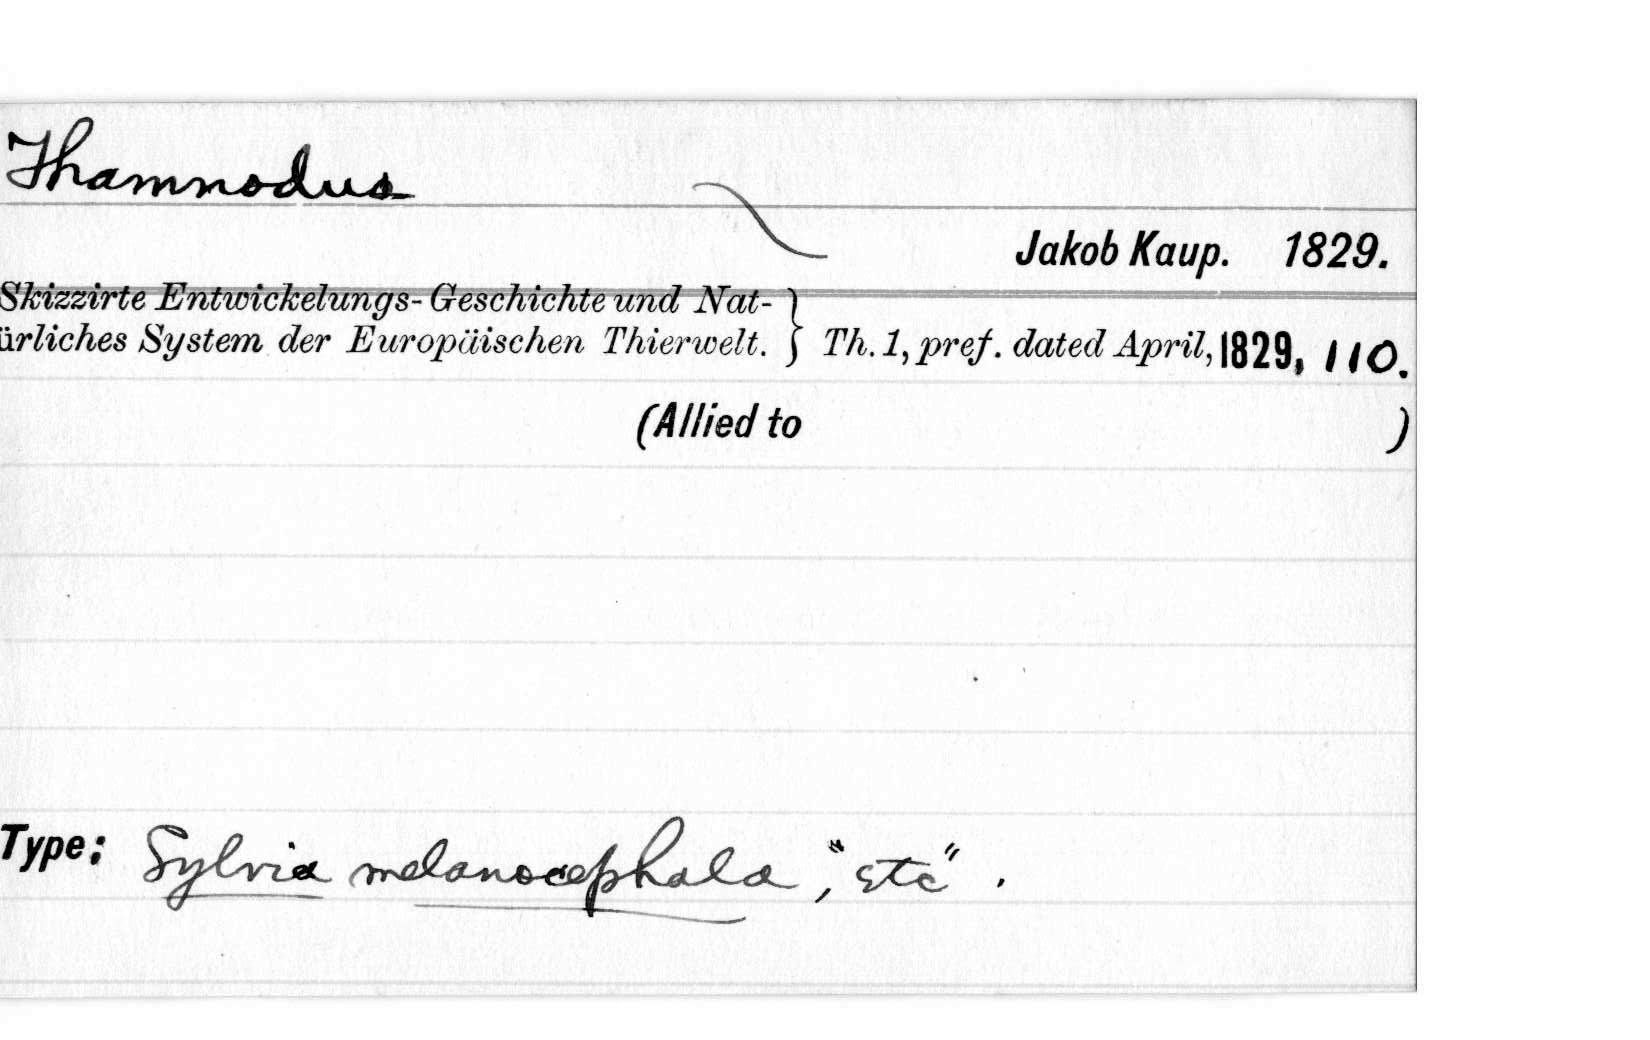 Thamnodus
Jakob Kaup. 1829.
Skizzirte Entwickelungs-Geschichte und Nat- }
ürliches System der Europäischen Thierwelt. } Th. 1, pref. dated April, 1829, 110.
(Allied to )
Type: Sylvia melanocephala, "etc".